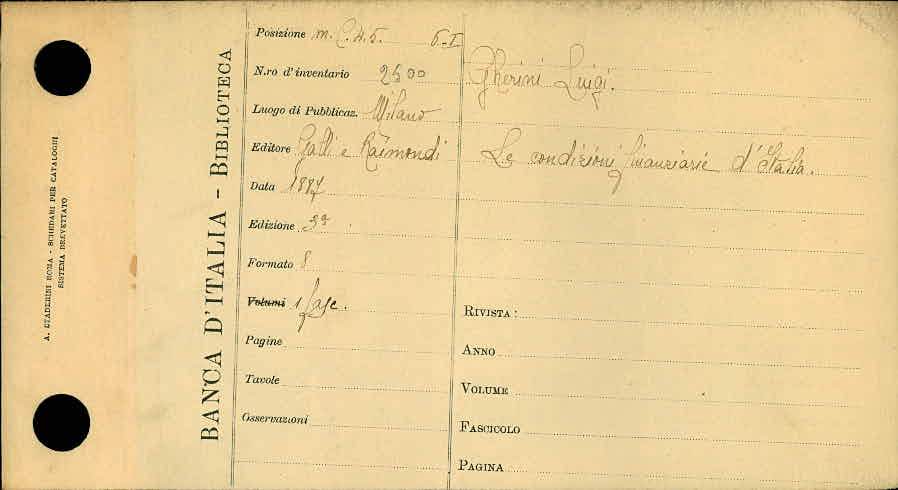 A. STADERINI ROMA - SCHEDARI PER CATALOGHI
SISTEMA BREVETTATO
BANCA D'ITALIA - BIBLIOTECA
Posizione m. C.45. 6-I
N.ro d'inventario 2500
Luogo di Pubblicaz. Milano
Editore Galli e Raimondi
Data 1887
Edizione 3ª
Formato 8
Volumi 1 fasc.
Pagine
Tavole
Osservazioni
Gherini Luigi.
Le condizioni finanziarie d'Italia.
RIVISTA:
ANNO
VOLUME
FASCICOLO
PAGINA